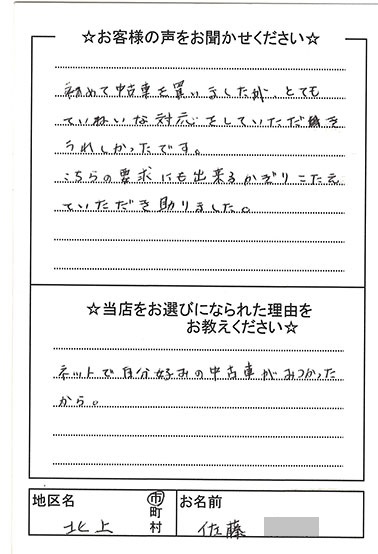 ☆お客様の声をお聞かせください☆
初めて中古車を買いましたが、とても
ていねいな対応をしていただき
うれしかったです。
こちらの要求にも出来るかぎりこたえ
ていただき助りました。
☆当店をお選びになられた理由を
お教えください☆
ネットで自分好みの中古車がみつかった
から。
地区名 市町村 お名前
北上 佐藤